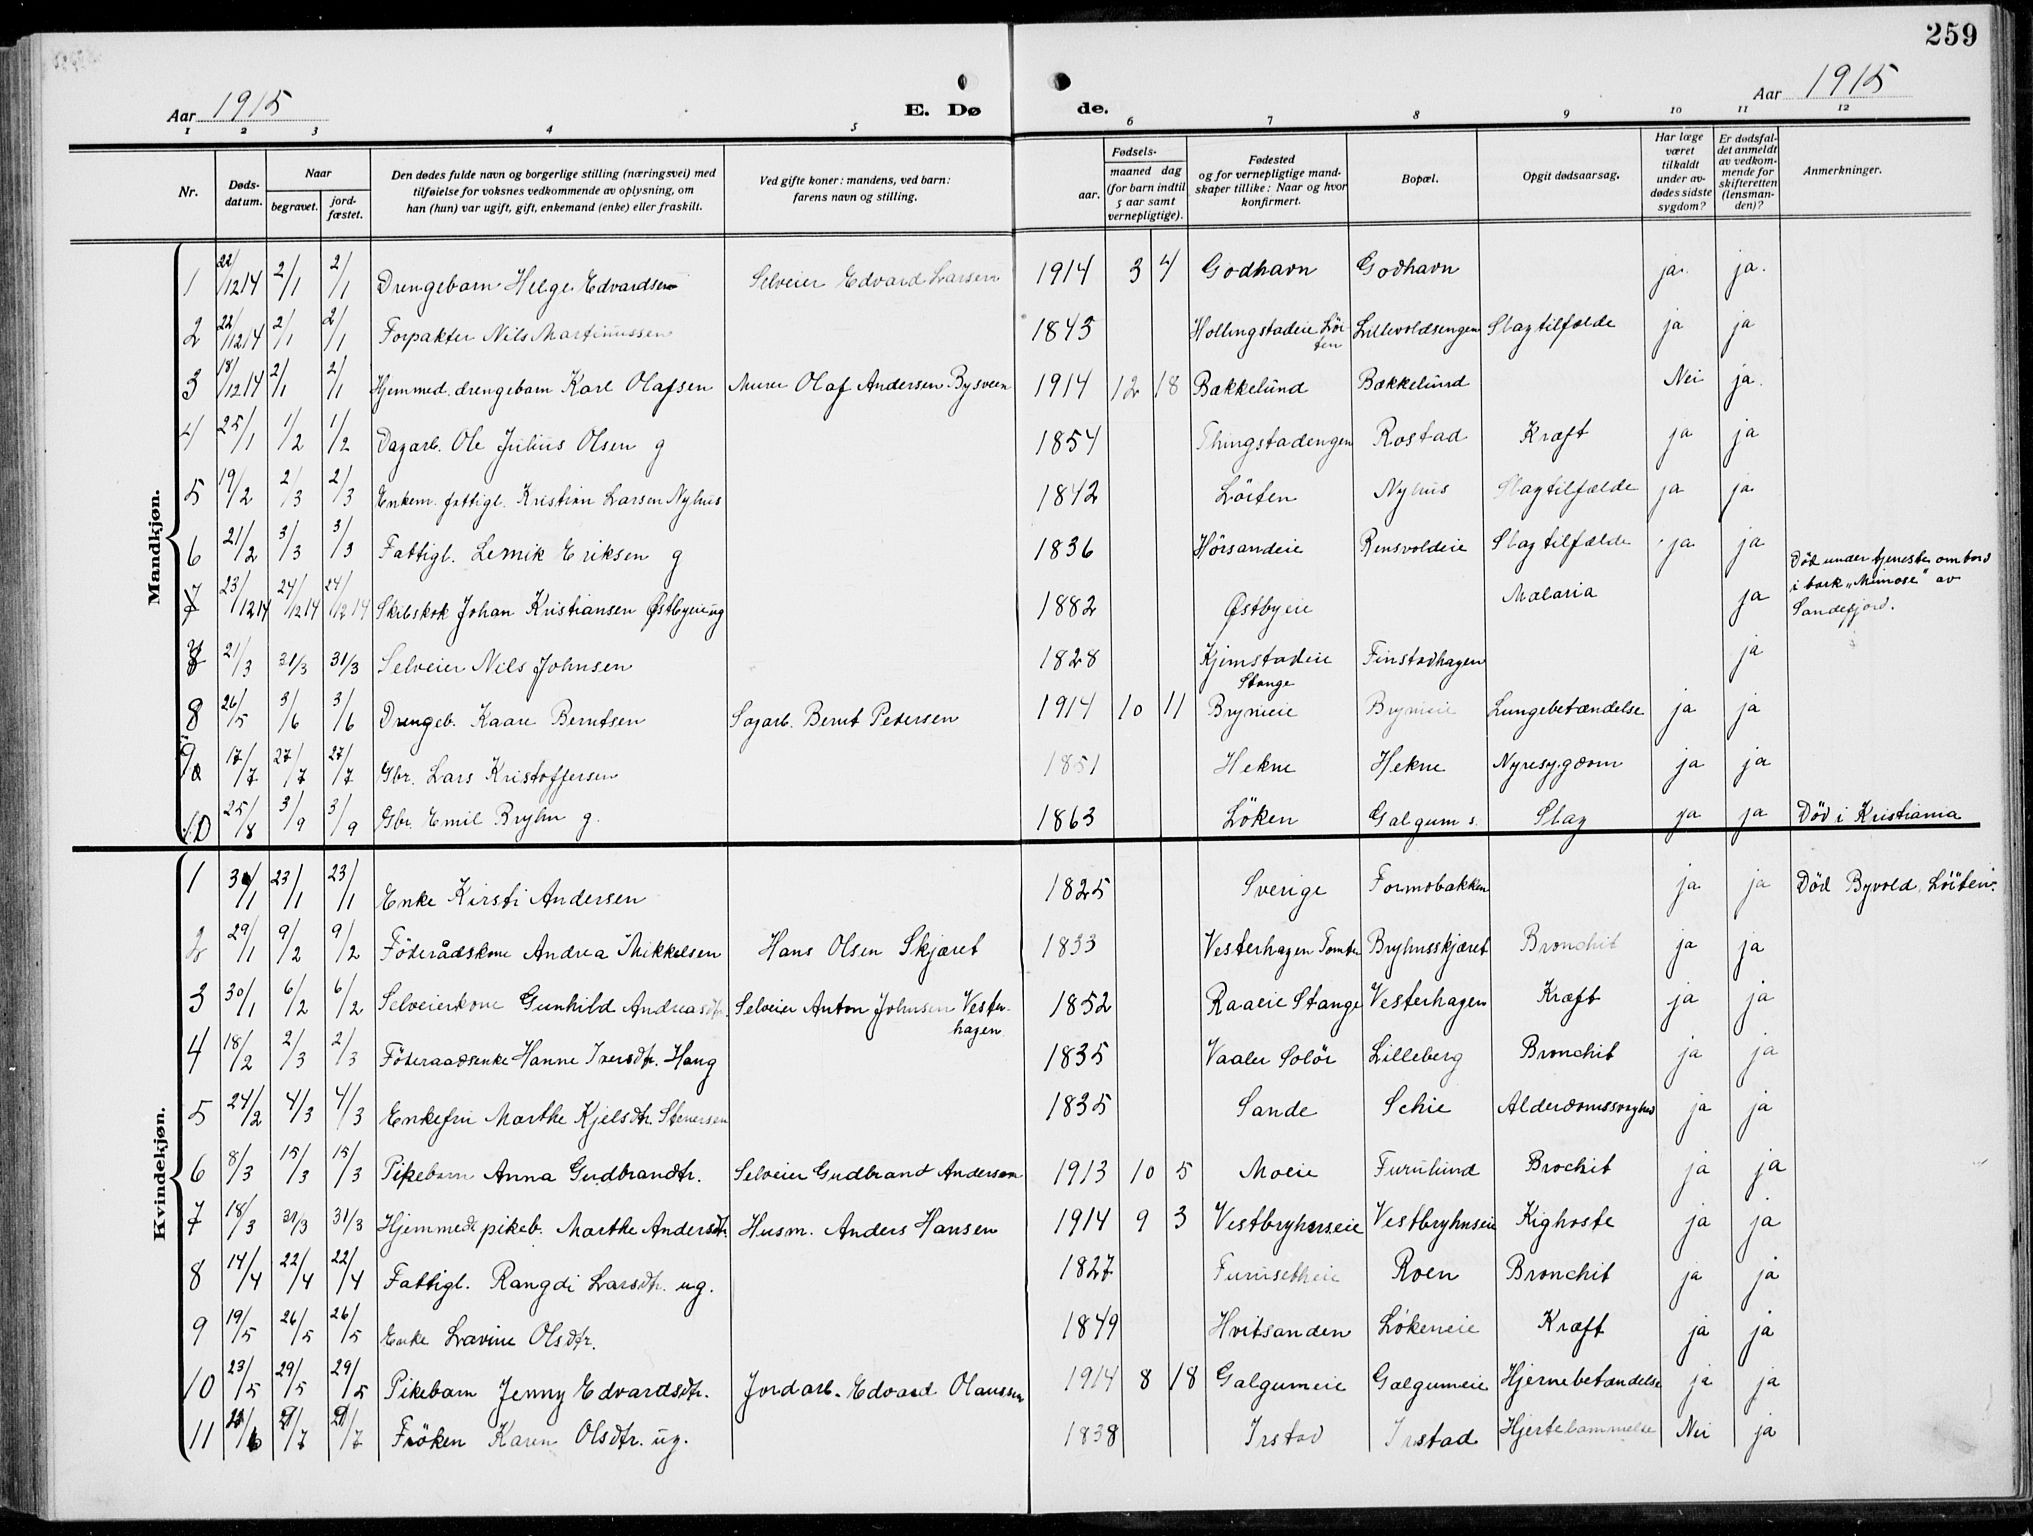 259
Aar 1915
E. Døde.
Aar 1915
1 2 3 4 5 6 7 8 9 10 11 12
Nr.
Døds-datum.
Naar
begravet.
jord-fæstet.
Den dødes fulde navn og borgerlige stilling (næringsvei) med
tilføielse for voksnes vedkommende av oplysning, om
han (hun) var ugift, gift, enkemand (enke) eller fraskilt.
Ved gifte koner: mandens, ved barn:
farens navn og stilling.
aar.
Fødsels-
maaned dag
(for barn indtil
5 aar samt
vernepligtige).
Fødested
og for vernepligtige mand-
skaper tillike: Naar og hvor
konfirmert.
Bopæl.
Opgit dødsaarsag.
Har læge
været
tilkaldt
under av-
dødes sidste
sygdom?
Er dødsfal-
det anmeldt
av vedkom-
mende for
skifteretten
(lensman-
den)?
Anmerkninger.
Mandkjøn.
1 22/12 14 2/1 2/1 Drengebarn Helge Edvardsen Selveier Edvard Larsen 1914 3 4 Godhavn Godhavn ja. ja.
2 22/12 14 2/1 2/1 Forpakter Nils Martinussen 1843 Hollingstadeie Löiten Lillevoldsengen Slagtilfælde ja ja
3 18/12 14 2/1 2/1 Hjemmed. drengebarn Karl Olafsen Murer Olaf Andersen Bysveen 1914 12 18 Bakkelund Bakkelund Nei ja.
4 25/1 1/2 1/2 Dagarb. Ole Julius Olsen g 1854 Thingstadengen Rostad Kræft ja ja
5 19/2 2/3 2/3 Enkem. fattigl. Kristian Larsen Nyhus 1842 Löiten Nyhus Slagtilfælde ja ja
6 21/2 3/3 3/3 Fattigl. Lemik Eriksen g 1836 Hörsandeie Rensvoldeie Slagtilfælde ja ja
7 23/12 14 24/12 14 24/12 14 Skibskok Johan Kristiansen Østbyeie ug 1882 Østbyeie Malaria ja Död under tjeneste ombord
i bark „Mimose" av
Sandefjord.
8 21/3 31/3 31/3 Selveier Nils Johnsen 1828 Kjemstadeie Stange Finstadhagen ja
8 26/5 3/6 3/6 Drengeb. Kaare Berntsen Sagarb. Bernt Petersen 1914 10 11 Brynieie Brynieie Lungebetændelse ja ja
9 17/7 27/7 27/7 Gbr. Lars Kristoffersen 1851 Hekne Hekne Nyresygdom ja ja
10 25/8 3/9 3/9 Gbr. Emil Bryhn g. 1863 Löken Galgum s. Slag ja ja Död i Kristiania
Kvindekjøn.
1 23/1 23/1 Enke Kirsti Andersen 1825 Sverige Formobakken ja ja Död Byvold, Löiten.
2 29/1 9/2 9/2 Föderådskone Andrea Mikkelsen Hans Olsen Skjæret 1833 Vesterhagen Tomter Bryhnsskjæret Bronchit ja ja
3 30/1 6/2 6/2 Selveierkone Gunhild Andreasdtr. Selveier Anton Johnsen Vester-
hagen 1852 Raaeie Stange Vesterhagen Kræft ja ja
4 18/2 2/3 2/3 Föderaadsenke Hanne Iversdtr. Haug 1835 Vaaler Solör Lilleberg Bronchit ja ja
5 24/2 4/3 4/3 Enkefru Marthe Kjelsdtr. Stenersen 1835 Sande Schie Alderdomssvaghed ja ja
6 8/3 15/3 15/3 Pikebarn Anna Gudbrandtr. Selveier Gudbrand Andersen 1913 10 5 Moeie Furulund Brochit ja ja
7 18/3 31/3 31/3 Hjemmedt pikeb. Marthe Andersdtr. Husm. Anders Hansen 1914 9 3 Vestbryhnseie Vestbryhnseie Kighoste ja ja
8 14/4 22/4 22/4 Fattigl. Rangdi Larsdtr. ug. 1827 Furusetheie Roen Bronchit ja ja
9 19/5 26/5 26/5 Enke Lavine Olsdtr. 1849 Hvitsanden Lökeneie Kræft ja ja
10 23/5 29/5 29/5 Pikebarn Jenny Edvardsdtr. Jordarb. Edvard Olaussen 1914 8 18 Galgumeie Galgumeie Hjernebetændelse ja ja
11 Fröken Karen Olsdtr. ug. 1838 Irstad Irstad Hjertelammelse Nei ja